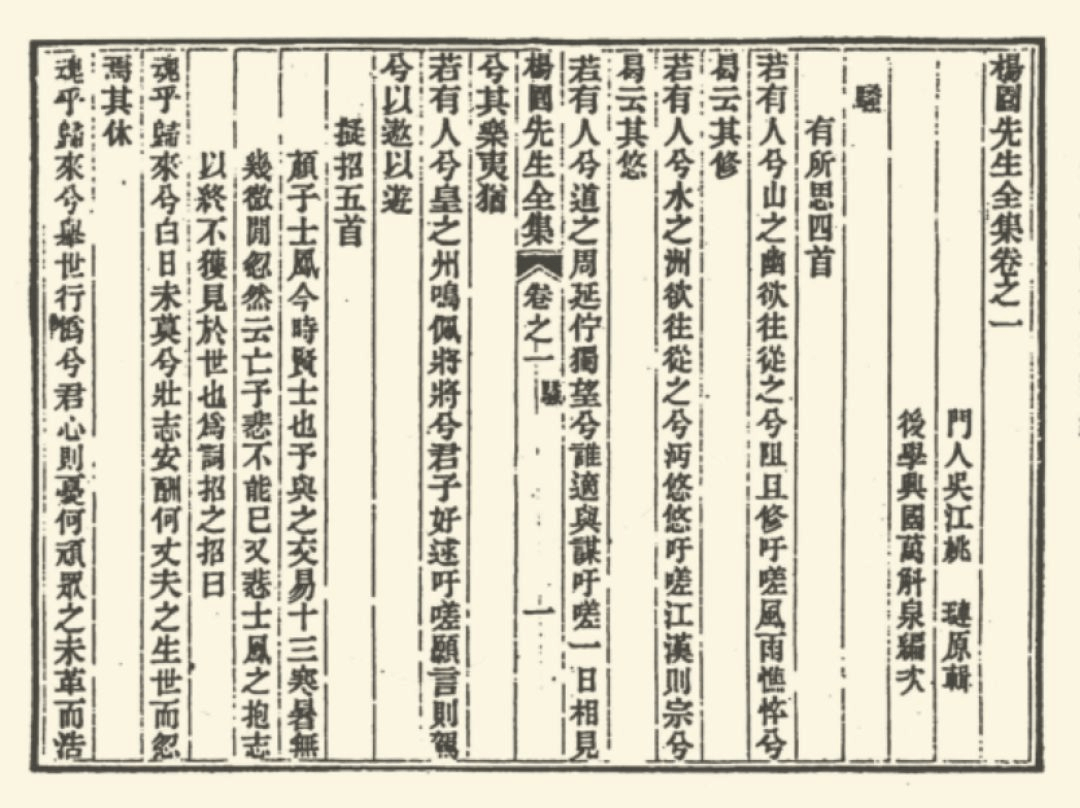 楊園先生全集卷之一
門人吳江姚 璉原輯
後學興國萬斛泉編次
騷
有所思四首
若有人兮山之幽欲往從之兮阻且修吁嗟風雨憔悴兮
曷云其修
若有人兮水之洲欲往從之兮沔悠悠吁嗟江漢則宗兮
曷云其悠
若有人兮道之周延佇獨望兮誰適與謀吁嗟一日相見
楊園先生全集 卷之一 騷 一
兮其樂夷猶
若有人兮皇之州鳴佩將將兮君子好逑吁嗟願言則駕
兮以遨以遊
擬招五首
顏子士鳳今時賢士也予與之交易十三寒暑無
幾微閒忽然云亡予悲不能已又悲士鳳之抱志
以終不獲見於世也爲詞招之招曰
魂乎歸來兮白日未莫兮壯志安酬何丈夫之生世而忽
焉其休
魂乎歸來兮舉世行滔兮君心則憂何頑眾之未革而浩